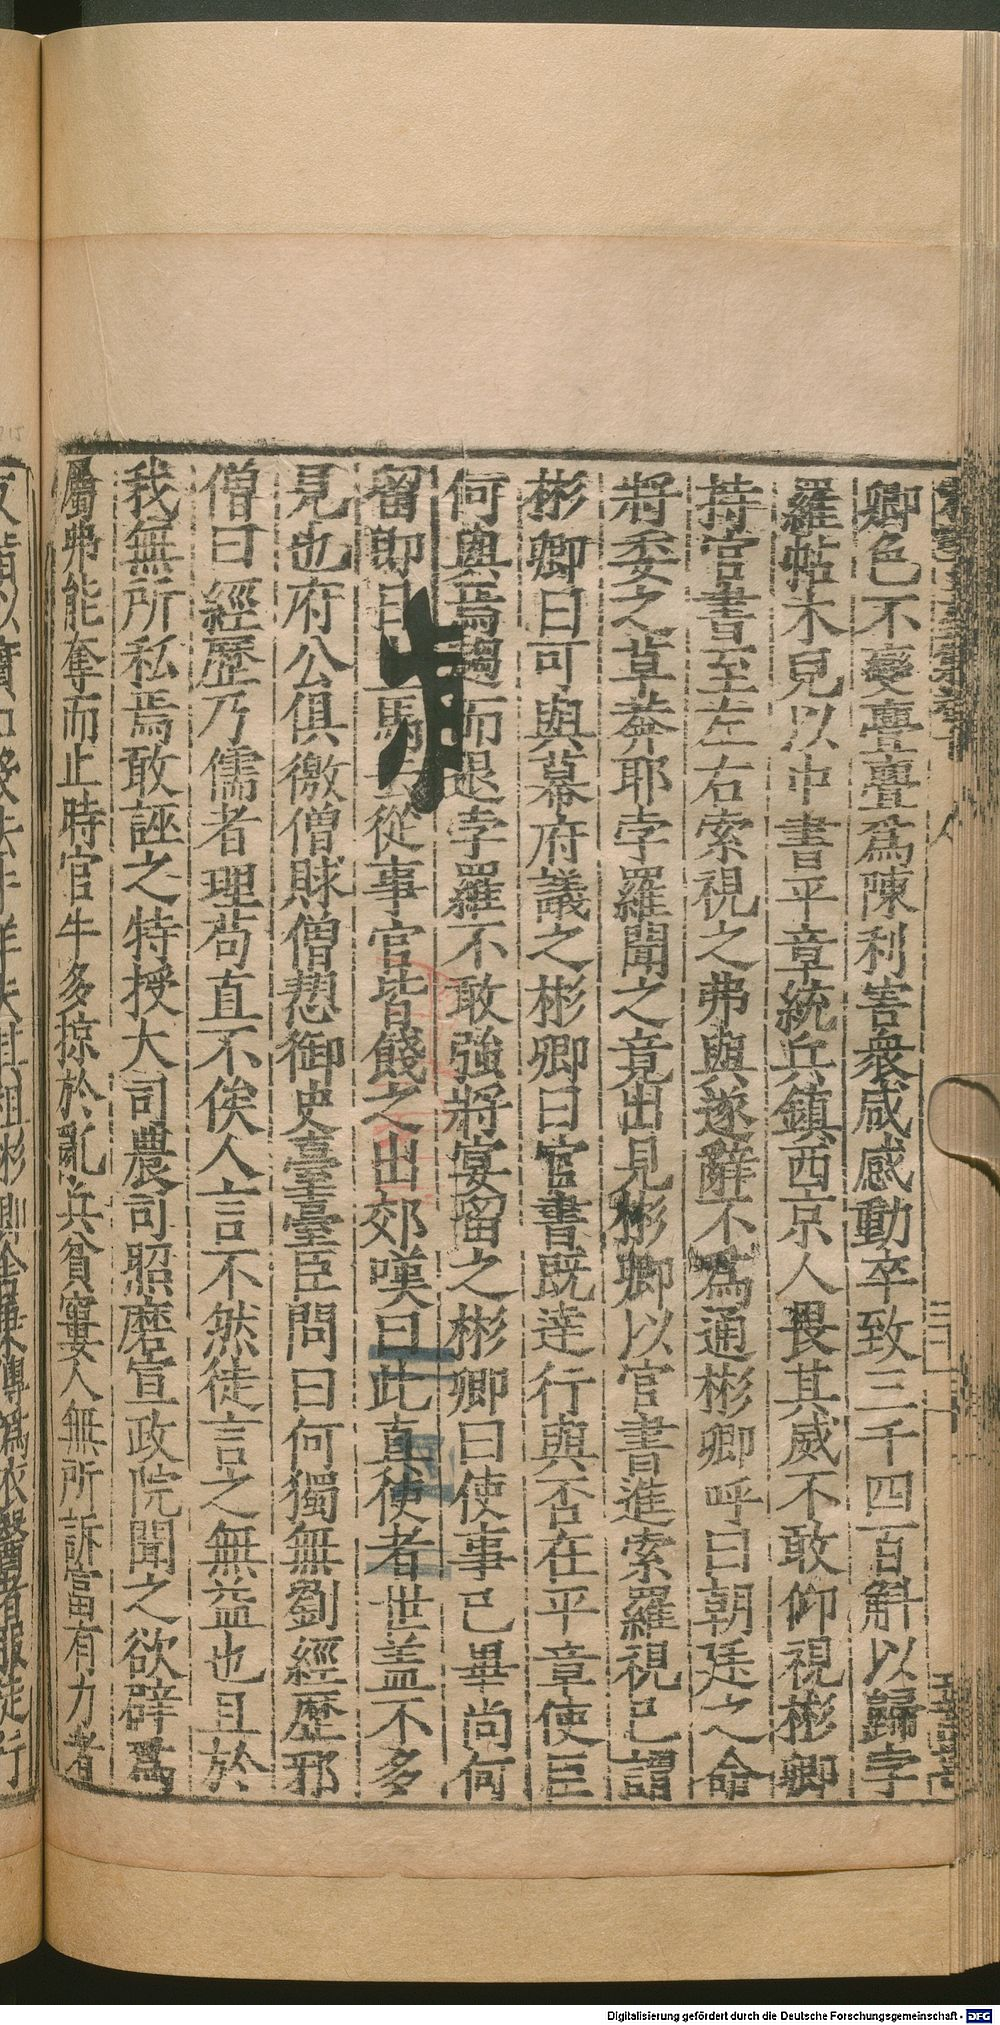 卿色不變亹亹爲陳利害衆咸感動卒致三千四百斛以歸孛
羅帖木兒以中書平章統兵鎮西京人畏其威不敢仰視彬卿
持官書至左右索視之弗與遂辭不爲通彬卿呼曰朝廷之命
將委之草莽耶孛羅聞之竟出見彬卿以官書進索羅視已謂
彬卿曰可與幕府議之彬卿曰官書既達行與否在平章使臣
何與焉趨而退孛羅不敢強將宴留之彬卿曰使事已畢尚何
留即日上馬去從事官皆餞之出郊嘆曰此直使者世盖不多
見也府公俱徼僧賕僧愬御史臺臺臣問曰何獨無劉經歷邪
僧曰經歷乃儒者理苟直不俟人言不然徒言之無益也且於
我無所私焉敢誣之特授大司農司照磨宣政院聞之欲辟爲
屬弗能奪而止時官牛多掠於亂兵貧窶人無所訴富有力者
Digitalisierung gefördert durch die Deutsche Forschungsgemeinschaft - DFG